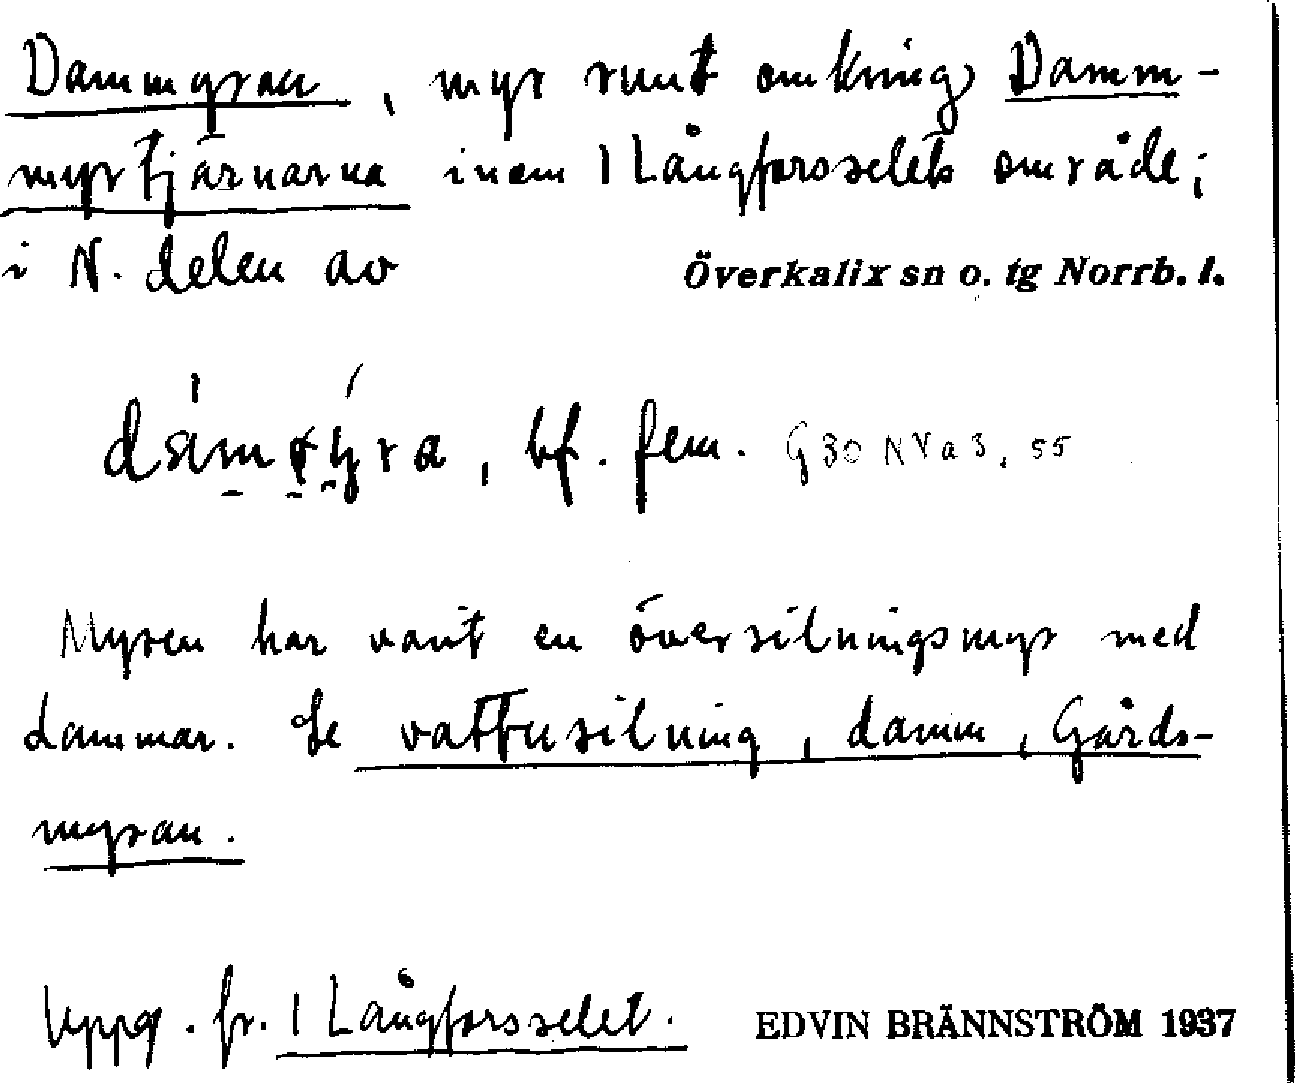 Dammyran, myr runt omkring Damm-
myrtjärnarna inom 1 Långforsselets område;
i N. delen av Överkalix sn o. tg Norrb. l.
bf. fem. G 30 NV a 3, 55
Myren har varit en översilningsmyr med
dammar. Se vattusilning, damm, Gårds-
myran.
Uppg. fr. 1 Långforsselet. EDVIN BRÄNNSTRÖM 1937